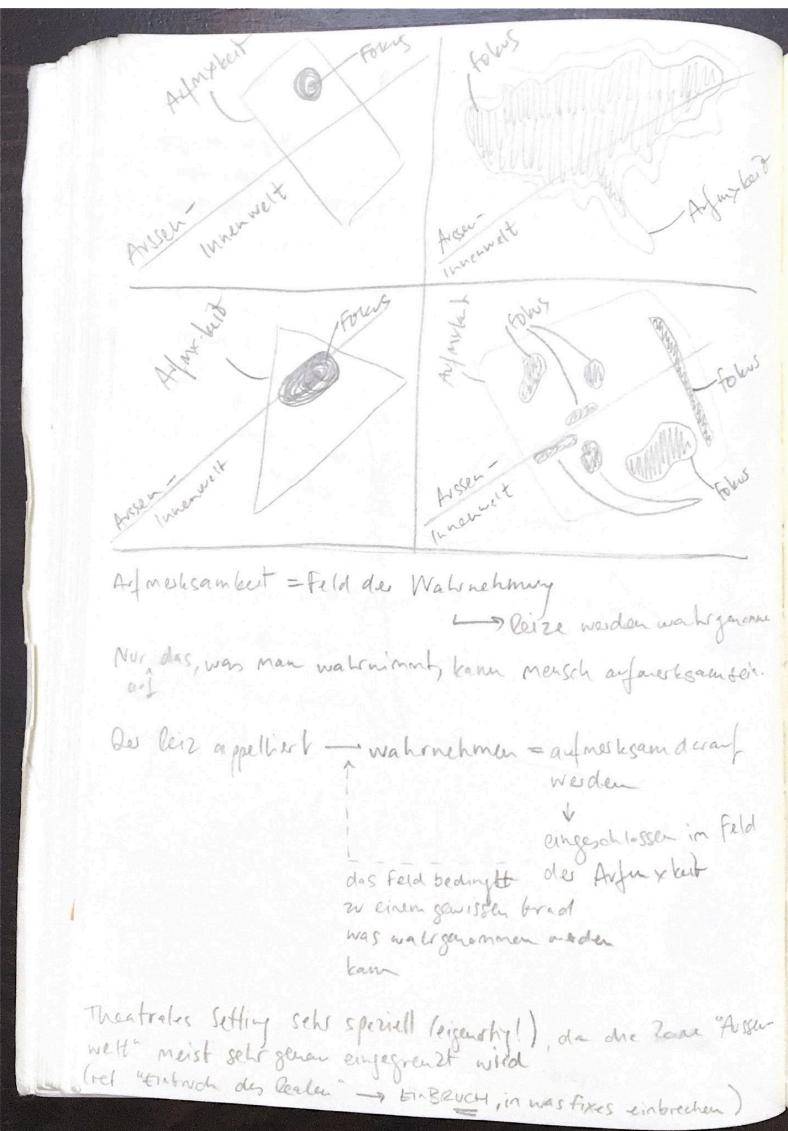 Aufmxkeit
Fokus
Aussen-
Innenwelt
Fokus
Aufmxkeit
Aussen-
Innenwelt
Aufmxkeit
Fokus
Aussen-
Innenwelt
Aufmxkeit
Fokus
Fokus
Fokus
Aussen-
Innenwelt
Aufmerksamkeit = Feld der Wahrnehmung
→ Reize werden wahrgenomme
Nur das, was man wahrnimmt, kann mensch aufmerksam sein.
auf
Der Reiz appelliert → wahrnehmen = aufmerksam darauf
werden
↓
eingeschlossen im Feld
der Aufmxkeit
das Feld bedingt
zu einem gewissen Grad
was wahrgenommen werden
kann
Theatrales Setting sehr speziell (eigenartig!), da die Zone "Aussen-
welt" meist sehr genau eingegrenzt wird
(ref "Einbruch des Realen" → EinBRUCH, in was fixes einbrechen)